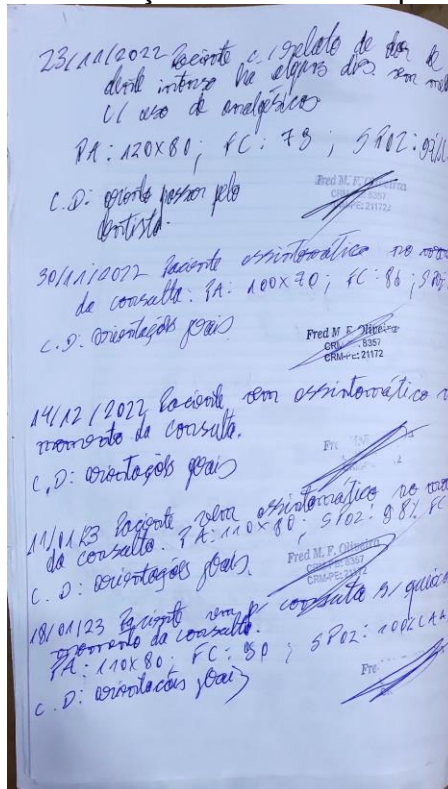 23/11/2022 Paciente c/ relato de dor de
dente intenso há alguns dias sem
c/ uso de analgésicos
PA: 120x80; FC: 78; SPO2: 97%
C.D: oriento passar pelo
dentista.
Fred M. F. Oliveira
8357
CRM-PE: 21172
30/11/2022 Paciente assintomático no
da consulta: PA: 100x70; FC: 86; SPO2
C.D: orientações gerais
Fred M. F. Oliveira
CRM 8357
CRM-PE: 21172
14/12/2022 Paciente vem assintomático
momento da consulta.
C.D: orientações gerais
11/01/23 Paciente vem assintomático no
da consulta. PA: 110x80; SPO2: 98% FC
C.D: orientações gerais.
Fred M. F. Oliveira
CRM-PB: 8357
CRM-PE: 21172
18/01/23 Paciente vem p/ consulta s/
momento da consulta.
PA: 110x80; FC: 90; SPO2: 100%
C.D: orientações gerais